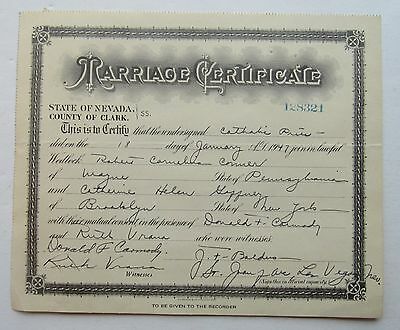 MARRIAGE CERTIFICATE
128321
STATE OF NEVADA,
COUNTY OF CLARK. } SS.
This is to Certify that the undersigned Catholic Priest
did on the 18 day of January A.D. 1947, join in lawful
Wedlock Robert Cornelius Conner
of Wayne State of Pennsylvania
and Catherine Helen
of Brooklyn State of New York
with their mutual consent, in the presence of Donald F. Carmody
and Ruth Vravis who were witnesses.
Donald F Carmody
Ruth Witnesses
J. F.
St. Joan of Arc Las Vegas, Nev.
(Sign this in official capacity)
TO BE GIVEN TO THE RECORDER